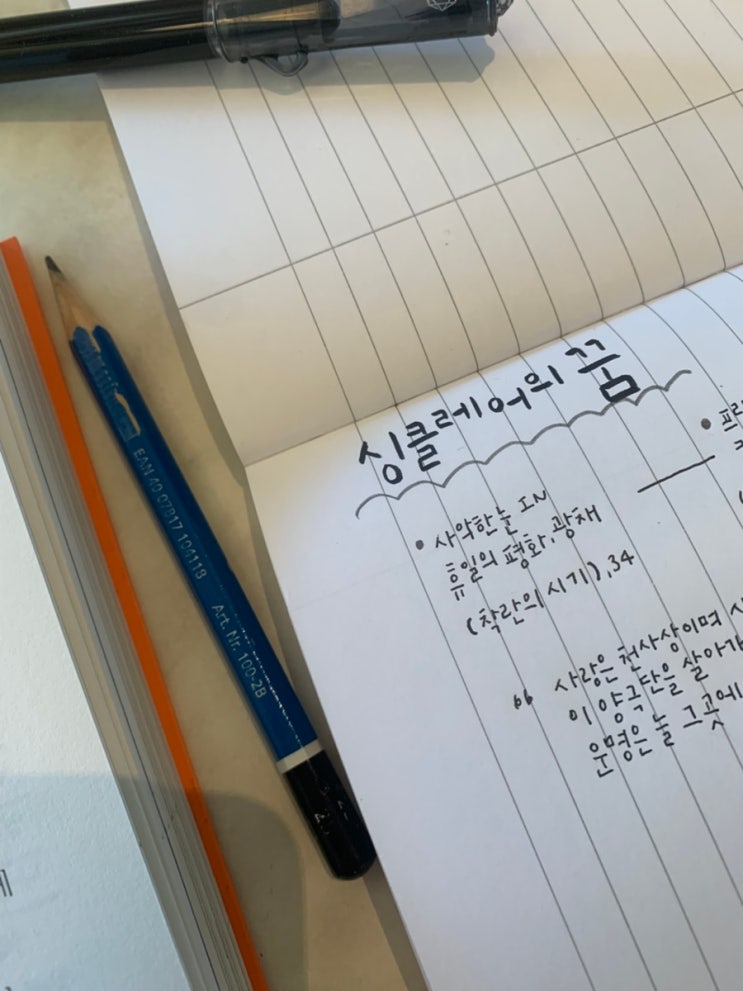 싱클레어의 꿈
사악한 눈 IN
휴일의 평화, 광채
(착란의 시기), 34
66 사랑은 천사상이며
이 양극단을 살아가
운명은 늘 그곳에
EAN 40 07817 104118
Art. Nr. 100-2B